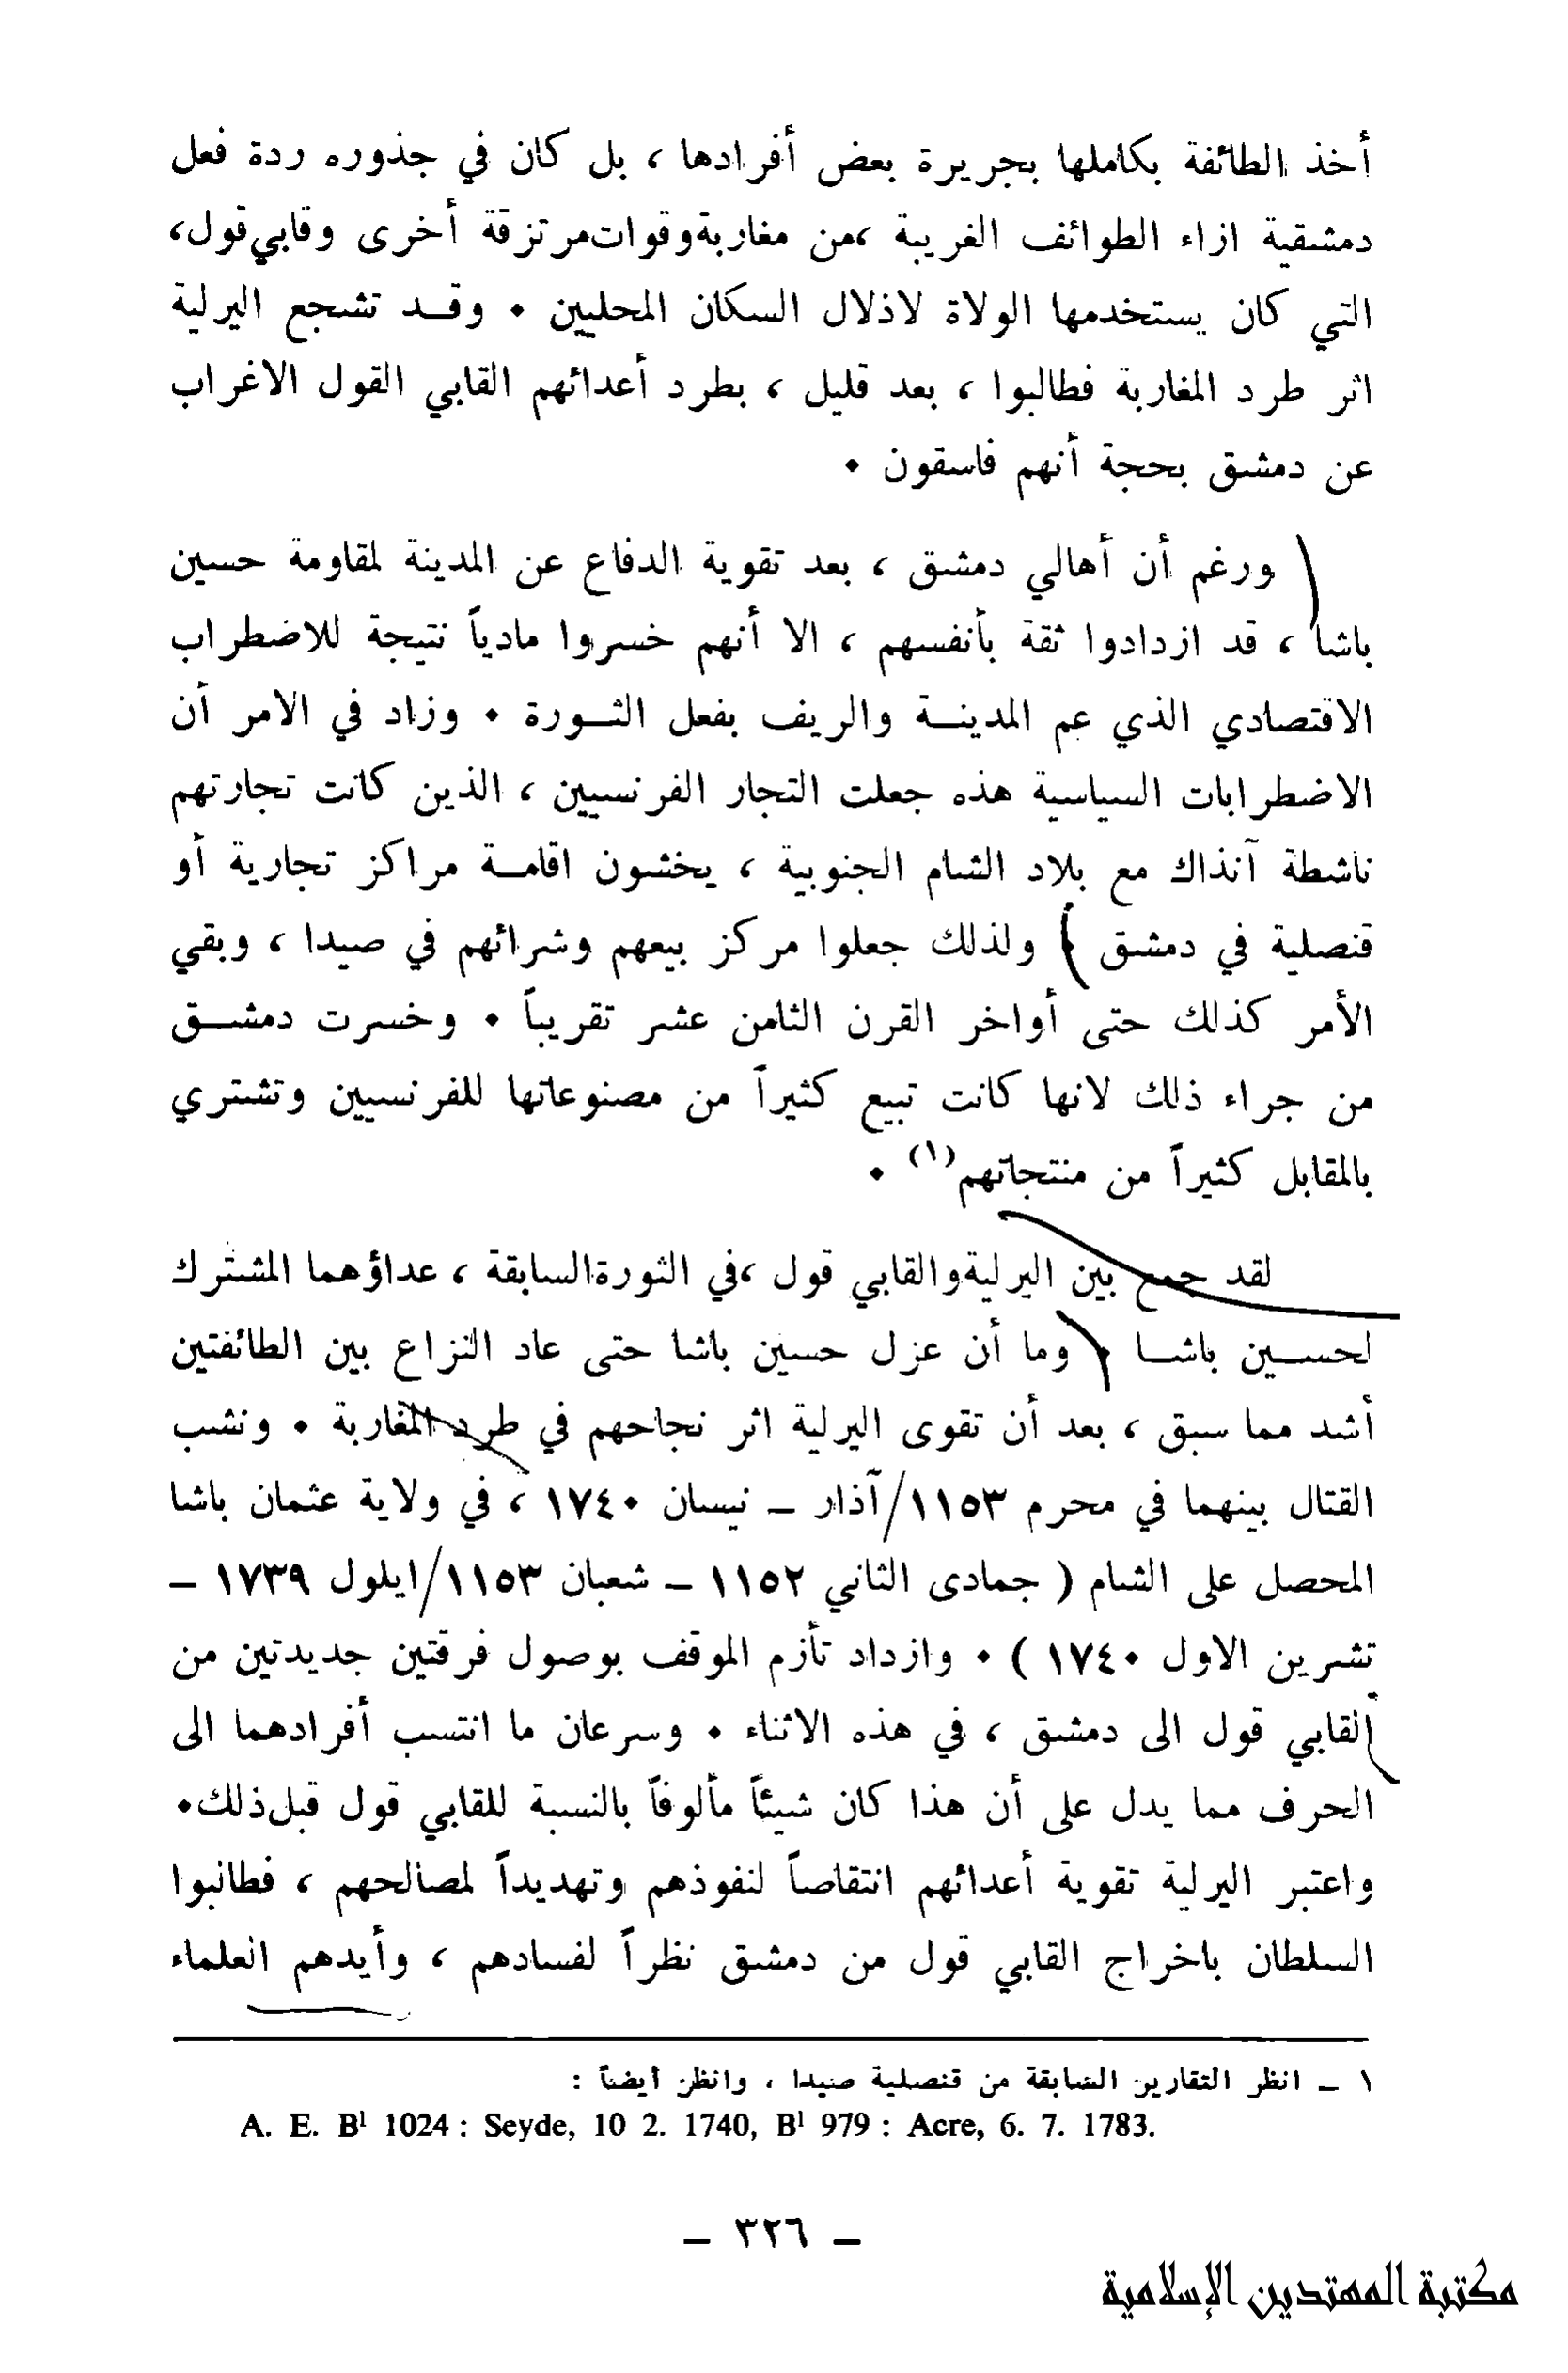 أخذ الطائفة بكاملها بجريرة بعض أفرادها ، بل كان في جذوره ردة فعل
دمشقية ازاء الطوائف الغريبة ،من مغاربة وقوات مرتزقة أخرى وقابي قول،
التي كان يستخدمها الولاة لاذلال السكان المحليين ٠ وقد تشجع اليرلية
اثر طرد المغاربة فطالبوا ، بعد قليل ، بطرد أعدائهم القابي القول الاغراب
عن دمشق بحجة أنهم فاسقون ٠
ورغم أن أهالي دمشق ، بعد تقوية الدفاع عن المدينة لمقاومة حسين
باشا ، قد ازدادوا ثقة بأنفسهم ، الا أنهم خسروا مادياً نتيجة للاضطراب
الاقتصادي الذي عم المدينة والريف بفعل الثورة ٠ وزاد في الامر أن
الاضطرابات السياسية هذه جعلت التجار الفرنسيين ، الذين كانت تجارتهم
ناشطة آنذاك مع بلاد الشام الجنوبية ، يخشون اقامة مراكز تجارية أو
قنصلية في دمشق ٠ ولذلك جعلوا مركز بيعهم وشرائهم في صيدا ، وبقي
الأمر كذلك حتى أواخر القرن الثامن عشر تقريباً ٠ وخسرت دمشق
من جراء ذلك لانها كانت تبيع كثيراً من مصنوعاتها للفرنسيين وتشتري
بالمقابل كثيراً من منتجاتهم(١) ٠
لقد جمع بين اليرلية والقابي قول ،في الثورة السابقة ، عداؤهما المشترك
لحسين باشا ٠ وما أن عزل حسين باشا حتى عاد النزاع بين الطائفتين
أشد مما سبق ، بعد أن تقوى اليرلية اثر نجاحهم في طرد المغاربة ٠ ونشب
القتال بينهما في محرم ١١٥٣/آذار – نيسان ١٧٤٠ ، في ولاية عثمان باشا
المحصل على الشام ( جمادى الثاني ١١٥٢ – شعبان ١١٥٣/ايلول ١٧٣٩ –
تشرين الاول ١٧٤٠ ) ٠ وازداد تأزم الموقف بوصول فرقتين جديدتين من
القابي قول الى دمشق ، في هذه الاثناء ٠ وسرعان ما انتسب أفرادهما الى
الحرف مما يدل على أن هذا كان شيئاً مألوفاً بالنسبة للقابي قول قبل ذلك٠
واعتبر اليرلية تقوية أعدائهم انتقاصاً لنفوذهم وتهديداً لمصالحهم ، فطالبوا
السلطان باخراج القابي قول من دمشق نظراً لفسادهم ، وأيدهم العلماء
١ – انظر التقارير السابقة من قنصلية صيدا ، وانظر أيضاً :
A. E. B¹ 1024 : Seyde, 10 2. 1740, B¹ 979 : Acre, 6. 7. 1783.
– ٣٢٦ –
مكتبة المهتدين الإسلامية